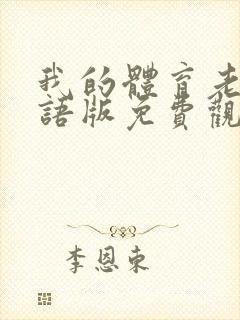 我的體育老
語版免費觀
李恩東